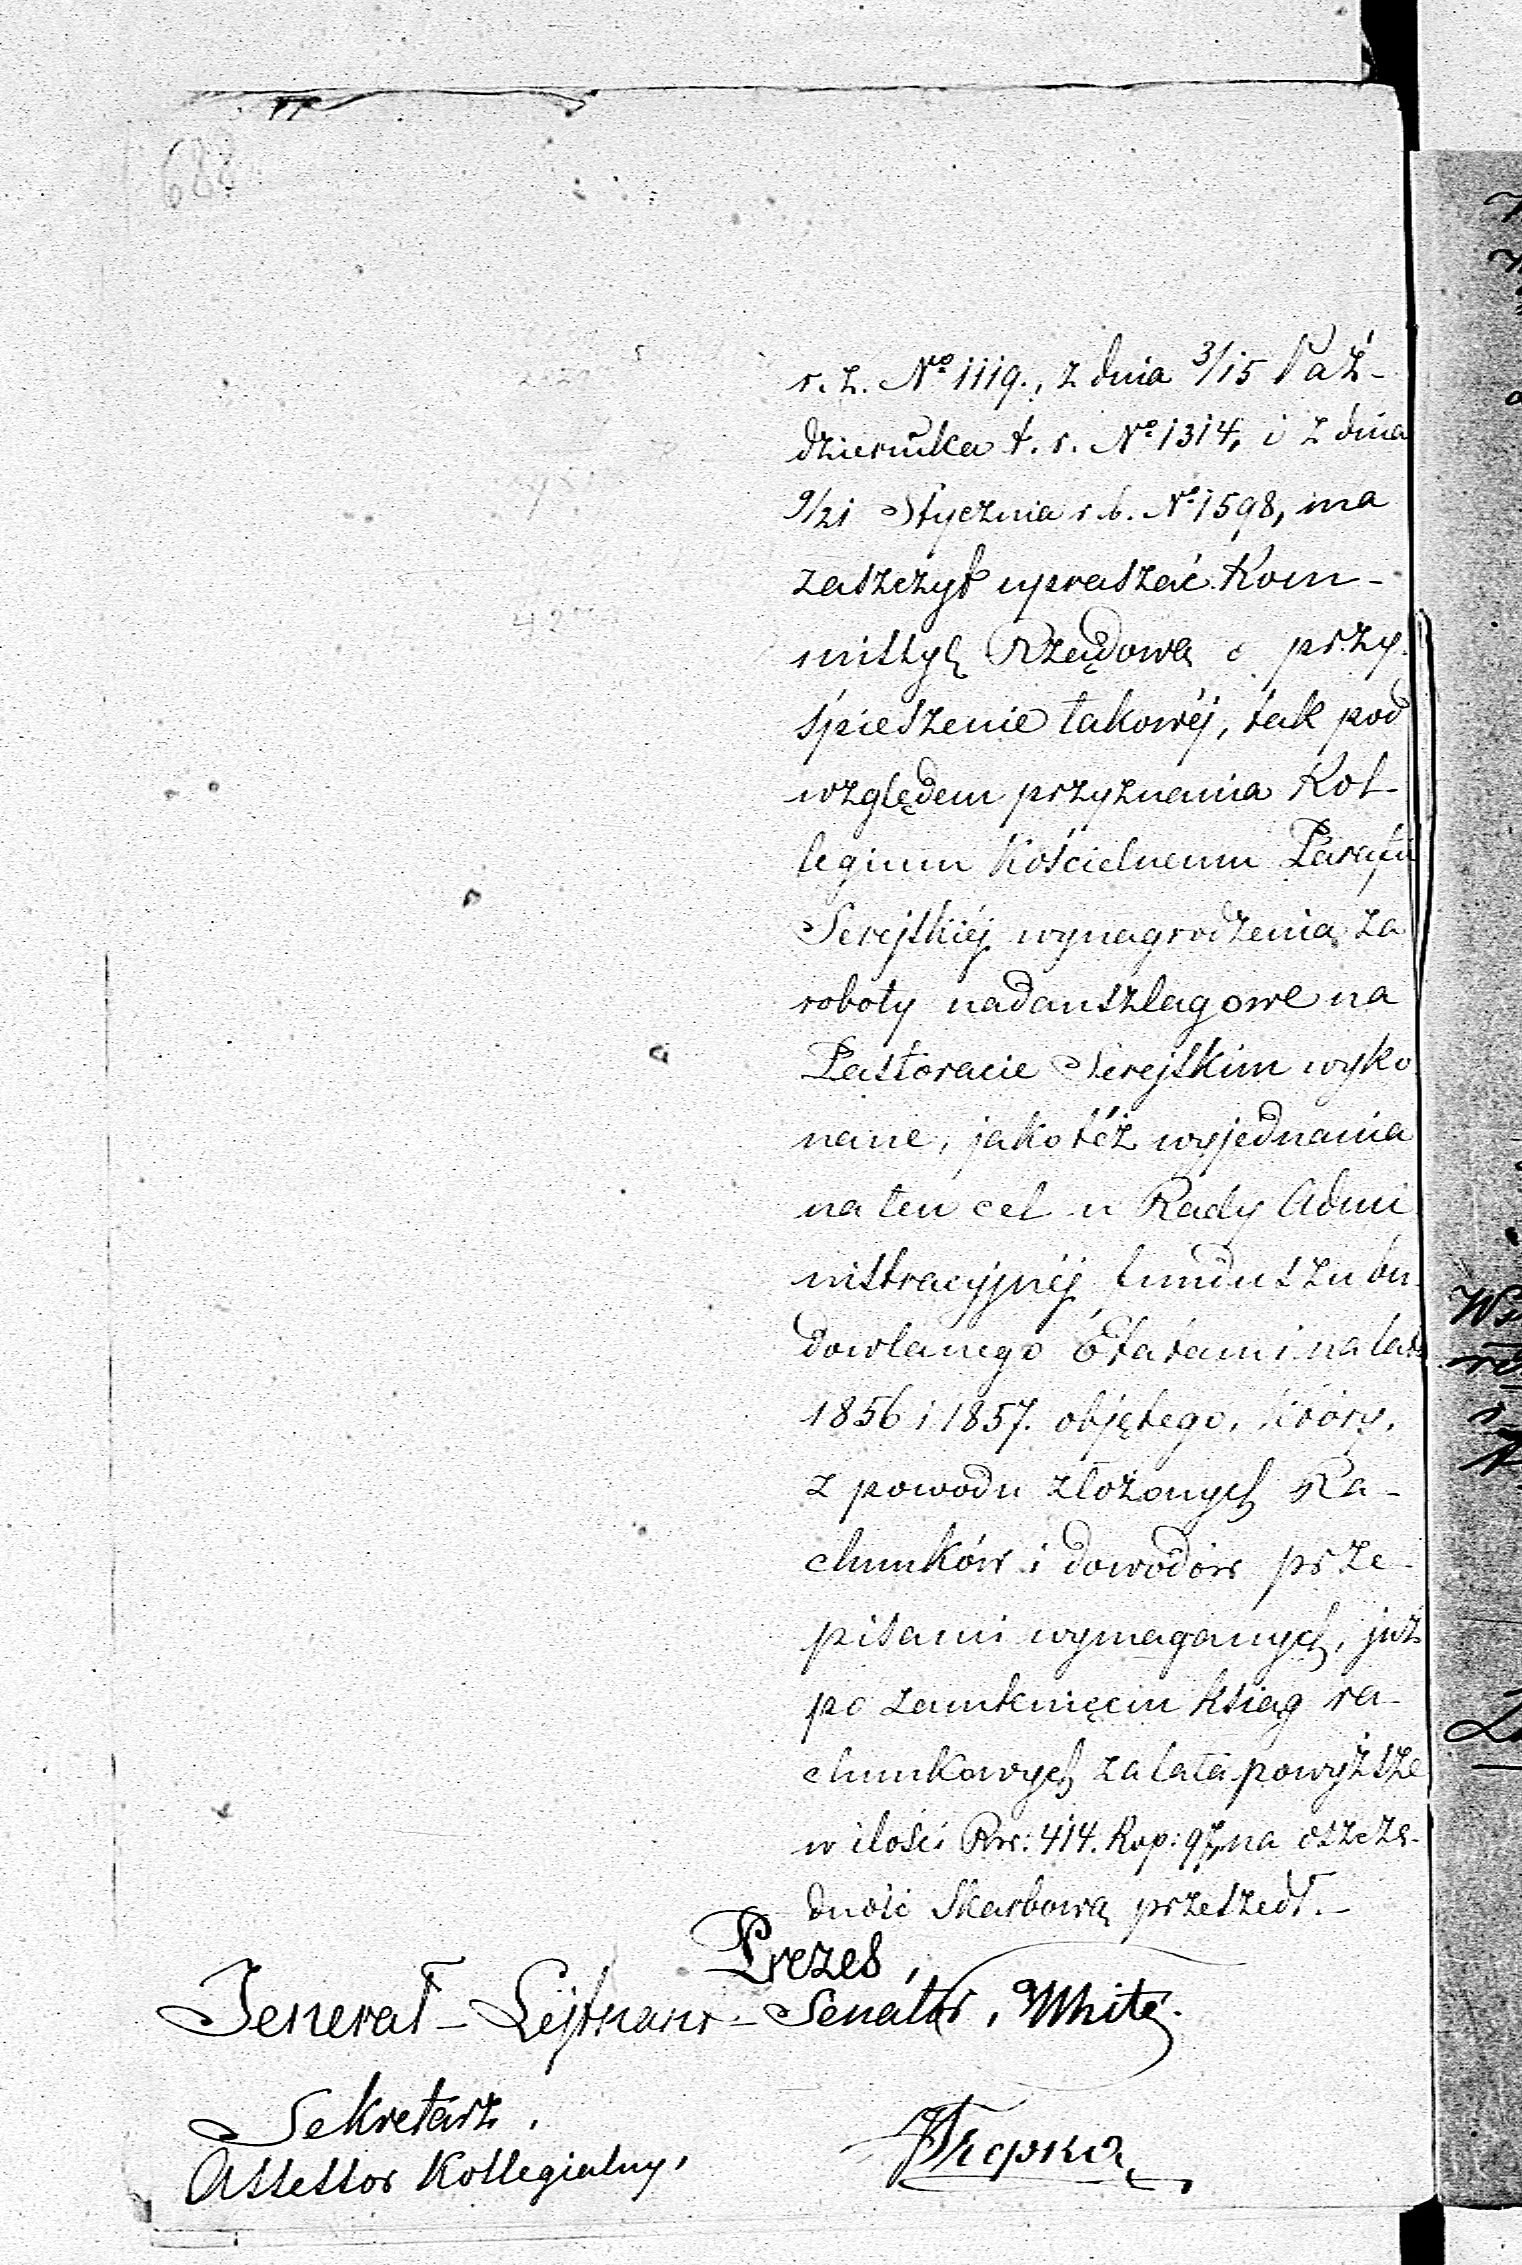 688
r. z. No 1119., z dnia 3/15 Paź-
dziernika t. r. No 1314, i z dnia
9/21 Stycznia r. b. No 1598, ma
zaszczyt upraszać Kom-
missyę Rządową o przy
śpieszenie takowéj, tak pod
względem przyznania Kol-
legium Kościelnemu Parafii
Serejskiéj wynagrodzenia za
roboty nadanszlagowe na
Pastoracie Serejskim wyko
nane, jakotéż wyjednania
na ten cel u Rady Admi
nistracyjnéj funduszu bu-
dowlanego Etatami na lata
1856 i 1857. objętego, który,
z powodu złożonych Ra-
chunków i dowodów prze-
pisami wymaganych, już
po zamknięciu ksiąg ra-
chunkowych za lata powyższe
w ilości Rsr: 414. Kop: 97, na oszczę-
dność Skarbową przeszedł.-
Prezes,
Jenerał-Lejtnant-Senator, White.
Sekretarz,
Assessor Kollegialny,